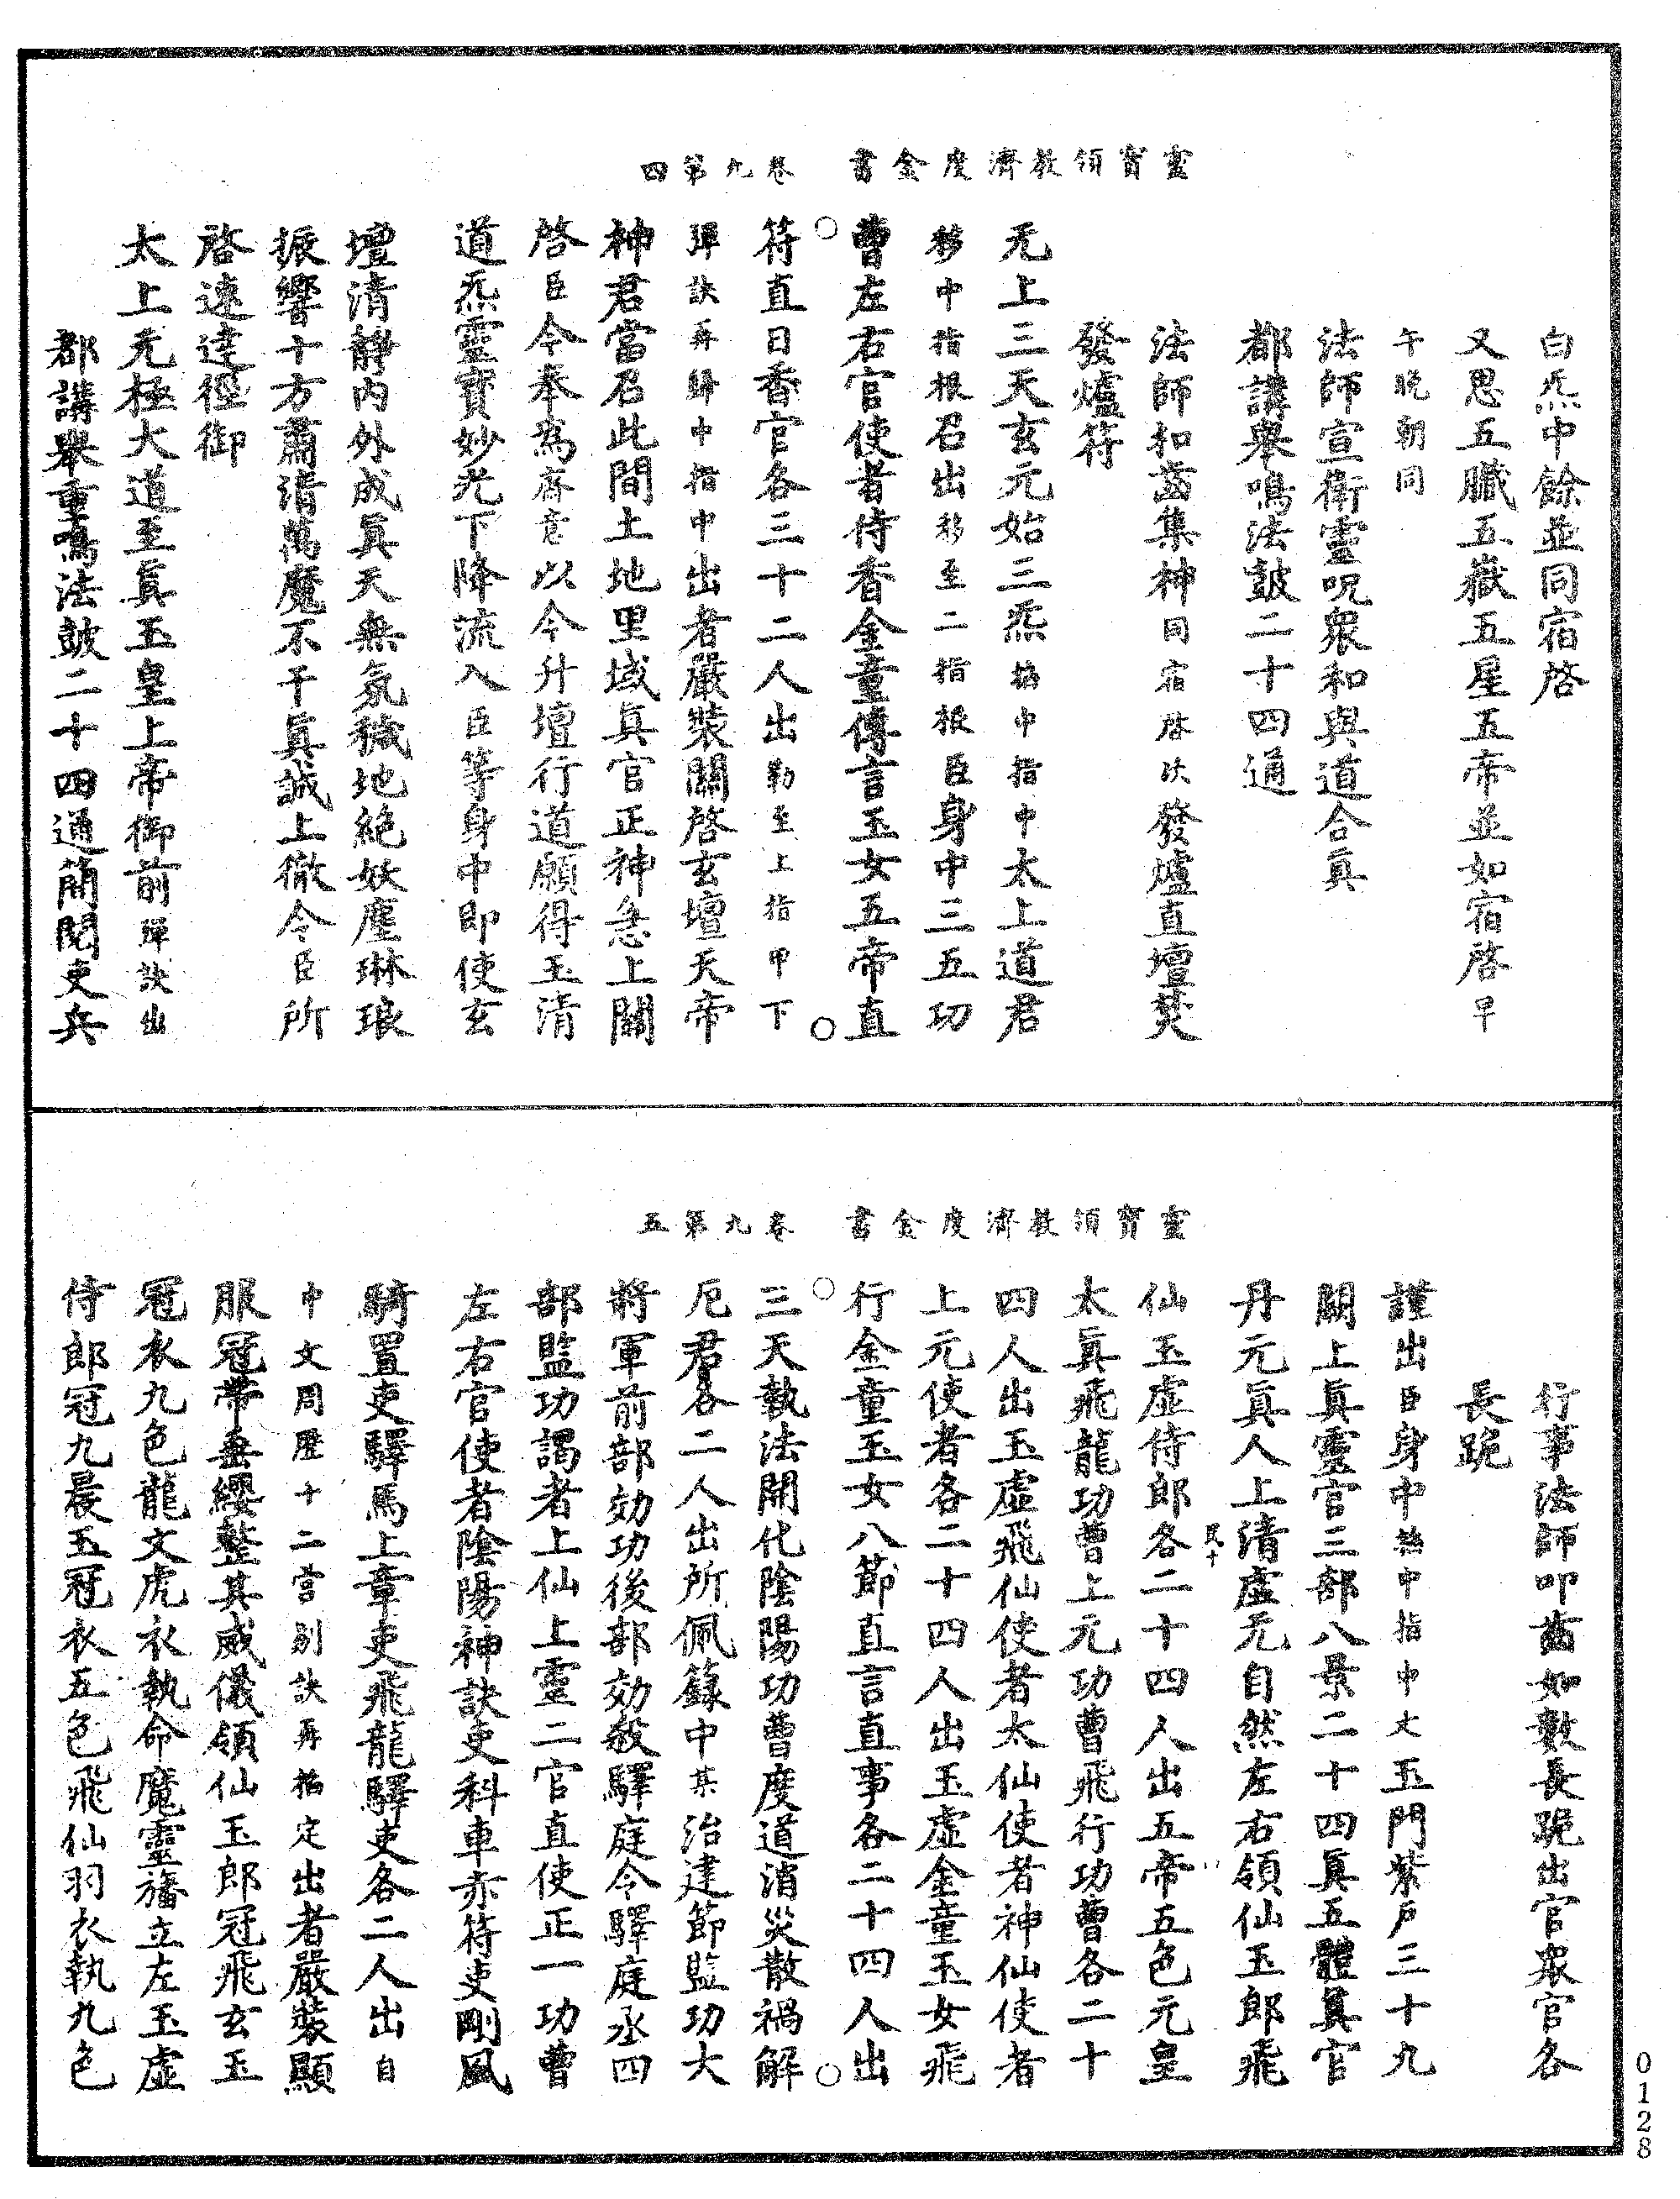 靈寶領教濟度金書　卷九第四
白炁中餘並同宿啓
又思五臟五嶽五星五帝並如宿啓早
午晚朝同
法師宣衛靈呪衆和與道合真
都講舉鳴法鼓二十四通
法師扣齒集神同宿啓次發爐直壇焚
發爐符
无上三天玄元始三炁掐中指中太上道君
移中指根召出移至二指根臣身中三五功
曹左右官使者侍香金童傳言玉女五帝直
符直日香官各三十二人出勒至上指甲下
彈訣再歸中指中出者嚴裝關啓玄壇天帝
神君當召此間土地里域真官正神急上關
啓臣今奉爲齋意以今升壇行道願得玉清
道炁靈寶妙光下降流入臣等身中即使玄
壇清靜內外成真天無氛穢地絕妖塵琳琅
振響十方肅清萬魔不干真誠上徹令臣所
啓速達徑御
太上无極大道至真玉皇上帝御前彈訣出
都講舉重鳴法鼓二十四通簡閱吏兵
靈寶領教濟度金書　卷九第五
行事法師叩齒如數長跪出官衆官各
長跪
謹出臣身中掐中指中文玉門紫戶三十九
關上真靈官三部八景二十四真五體真官
丹元真人上清虛无自然左右領仙玉郎飛
仙玉虛侍郎各二十四人出五帝五色元皇
太真飛龍功曹上元功曹飛行功曹各二十
四人出玉虛飛仙使者太仙使者神仙使者
上元使者各二十四人出玉虛金童玉女飛
行金童玉女八節直言直事各二十四人出
三天執法開化陰陽功曹度道消災散禍解
厄君各二人出所佩籙中某治建節監功大
將軍前部効功後部効殺驛庭令驛庭丞四
部監功謁者上仙上靈二官直使正一功曹
左右官使者陰陽神訣吏科車赤符吏剛風
騎置吏驛馬上章吏飛龍驛吏各二人出自
中文周歷十二宮別訣再掐定出者嚴裝顯
服冠帶垂纓整其威儀領仙玉郎冠飛玄玉
冠衣九色龍文虎衣執命魔靈旛立左玉虛
侍郎冠九晨玉冠衣五色飛仙羽衣執九色
0128